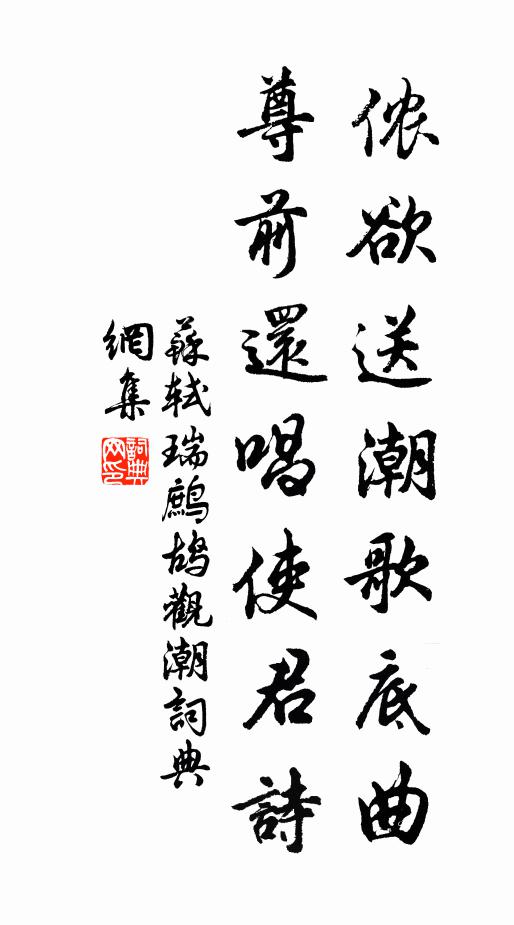 侬欲送潮歌底曲
尊前還唱使君詩
蘇軾瑞鷓鴣觀潮詞典
網集
詞典
网印